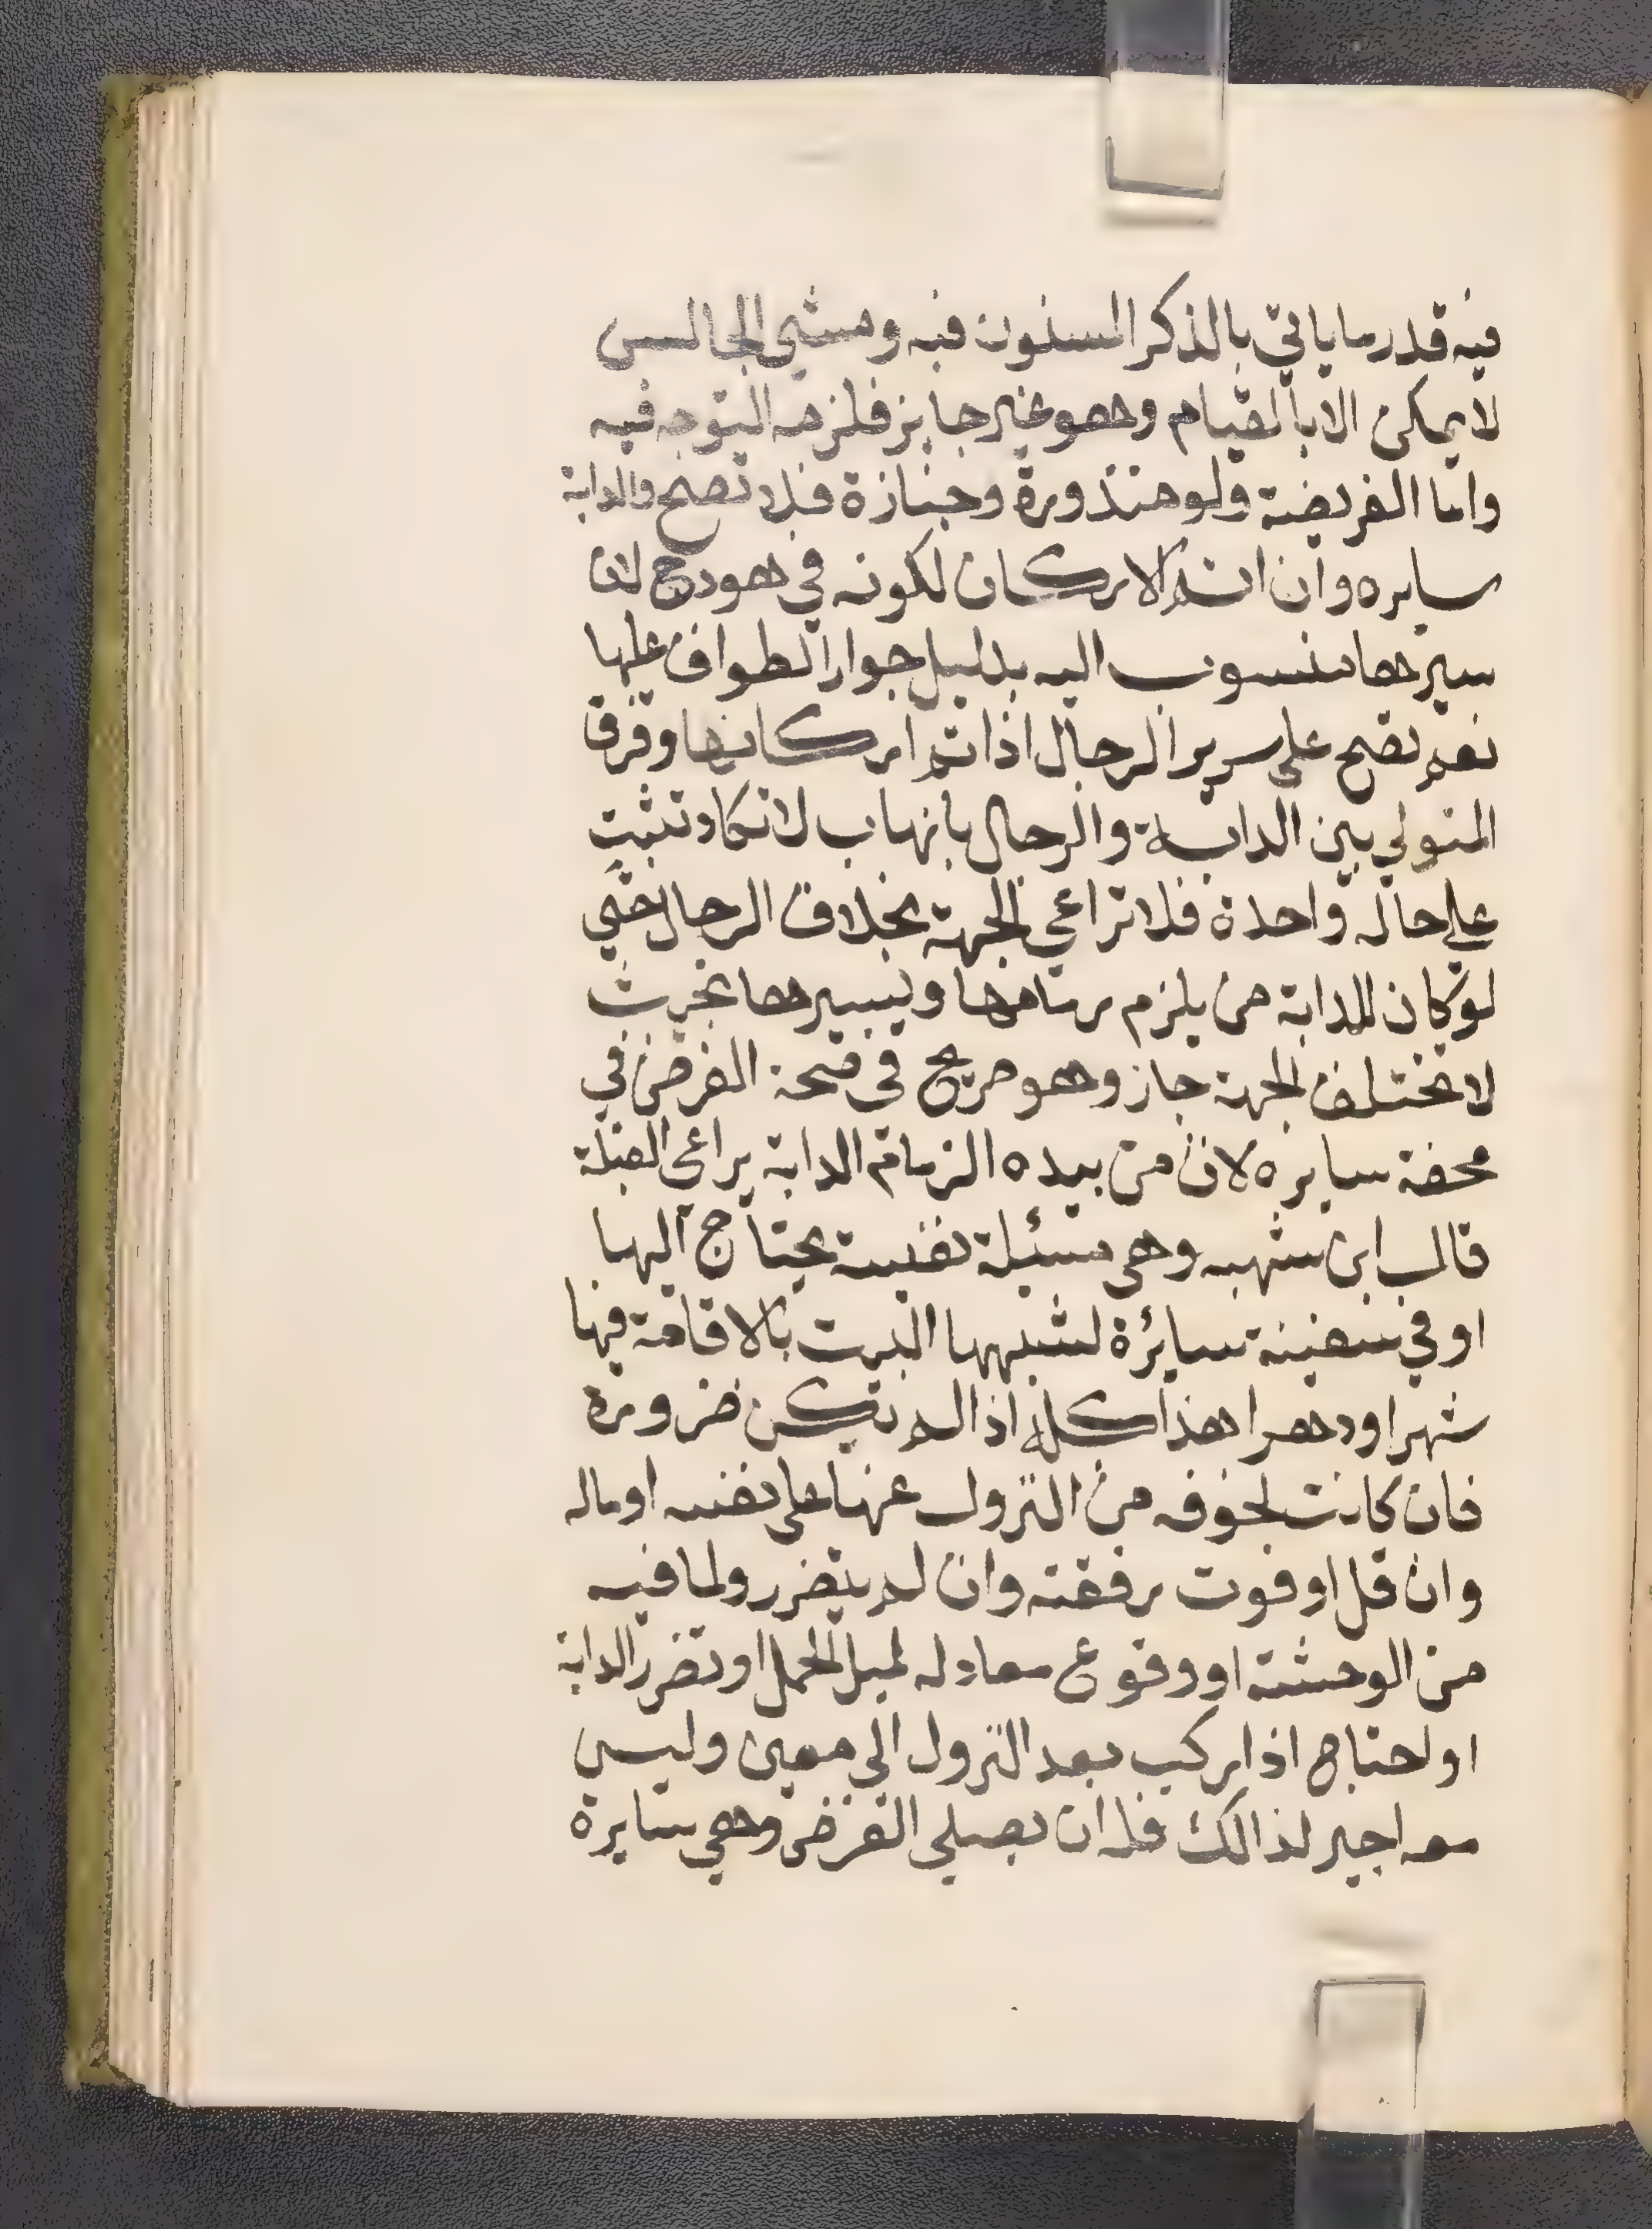 فيه قدر ما ياتي بالذكر المسنون فيه ومشي الجالس
لا يمكن الا بالقيام وهو غير جايز فلزمه التوجه فيه
واما الفريضة ولو منذورة وجنازة فلا تصح والدابة
سايره وان اتم الاركان لكونه في هودج لان
سيرها منسوب اليه بدليل جواز الطواف عليها
نعم تصح على سرير الرجال اذا تم اركانها وفرق
المتولي بين الدابة والرجال بانها لا تكاد تثبت
علي حاله واحدة فلا تراعي الجهة بخلاف الرجال حتي
لو كان للدابة من يلزم زمامها ويسيرها بحيث
لا تختلف الجهة جاز وهو صريح في صحة الفرض في
محفة سايره لان من بيده الزمام الدابة يراعي القبلة
قال ابن شهبه وهي مسئلة نفيسة يحتاج اليها
او في سفينة سائرة لشبهها البيت بالاقامة فيها
شهرا ودهرا هذا كله اذا لم تكن ضرورة
فان كانت لخوفه من النزول عنها على نفسه او ماله
وان قل او فوت رفقته وان لم يتضرر ولما فيه
من الوحشة او وقوع معادله لميل الحمل او تضرر الدابة
او احتاج اذا ركب بعد النزول الي معين وليس
معه اجير لذالك فله ان يصلي الفرض وهي سايرة